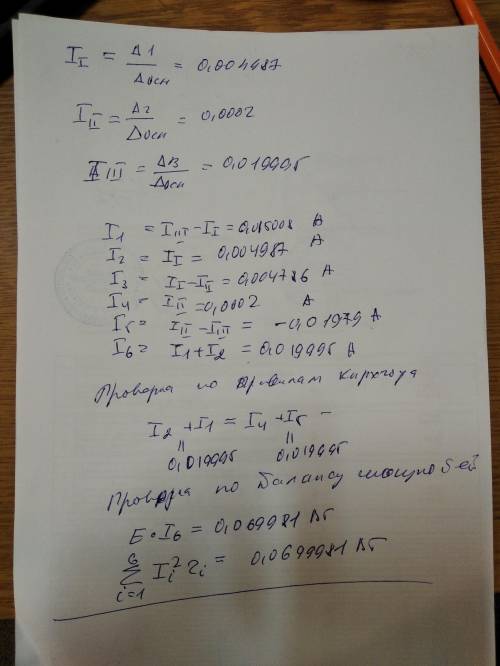 I_I = Δ1/Δосн = 0,004987
I_II = Δ2/Δосн = 0,0002
I_III = Δ3/Δосн = 0,019995
I1 = I_III - I_I = 0,015008 А
I2 = I_I = 0,004987 А
I3 = I_I - I_II = 0,004786 А
I4 = I_II = 0,0002 А
I5 = I_II - I_III = -0,01979 А
I6 = I1 + I2 = 0,019995 А
Проверка по правилам Кирхгофа
I2 + I1 = I4 + I5 -
0,019995 0,019995
Проверка по балансу мощностей
E·I6 = 0,069981 Вт
∑ i=1 6 I_i² r_i = 0,0699981 Вт